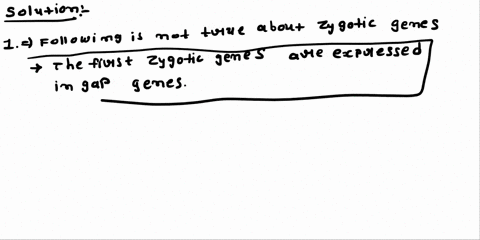 Solution:-
1. ⇒ Following is not true about zygotic genes
→ The first zygotic genes are expressed
in gap genes.